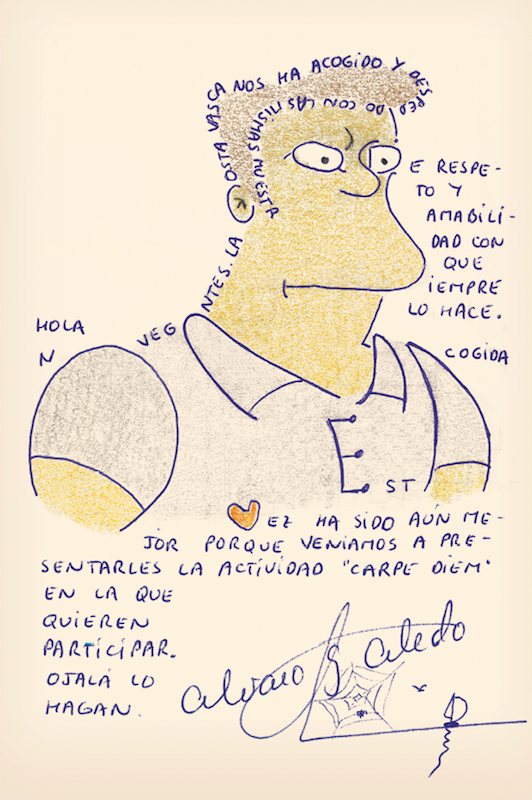 HOLA
N
VEG
NTES. LA
OSTA VASCA NOS HA ACOGIDO Y DESPED
DO CON LAS MISMAS MUESTA
E RESPE-
TO Y
AMABILI-
DAD CON
QUE
IEMPRE
LO HACE.
COGIDA
ST
EZ HA SIDO AÚN ME-
JOR PORQUE VENIAMOS A PRE-
SENTARLES LA ACTIVIDAD "CARPE DIEM"
EN LA QUE
QUIEREN
PARTICIPAR.
OJALÁ LO
HAGAN.
alvaro G alcedo